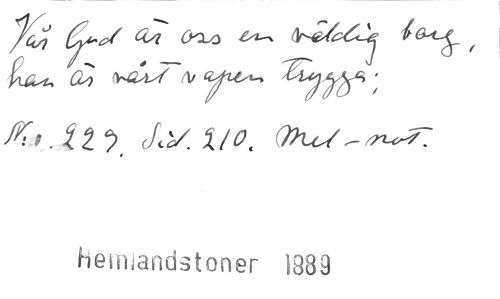 Vår Gud är oss en väldig borg,
han är vårt vapen trygga;
N:o. 229. Sid. 210. Mel-not.
Hemlandstoner 1889